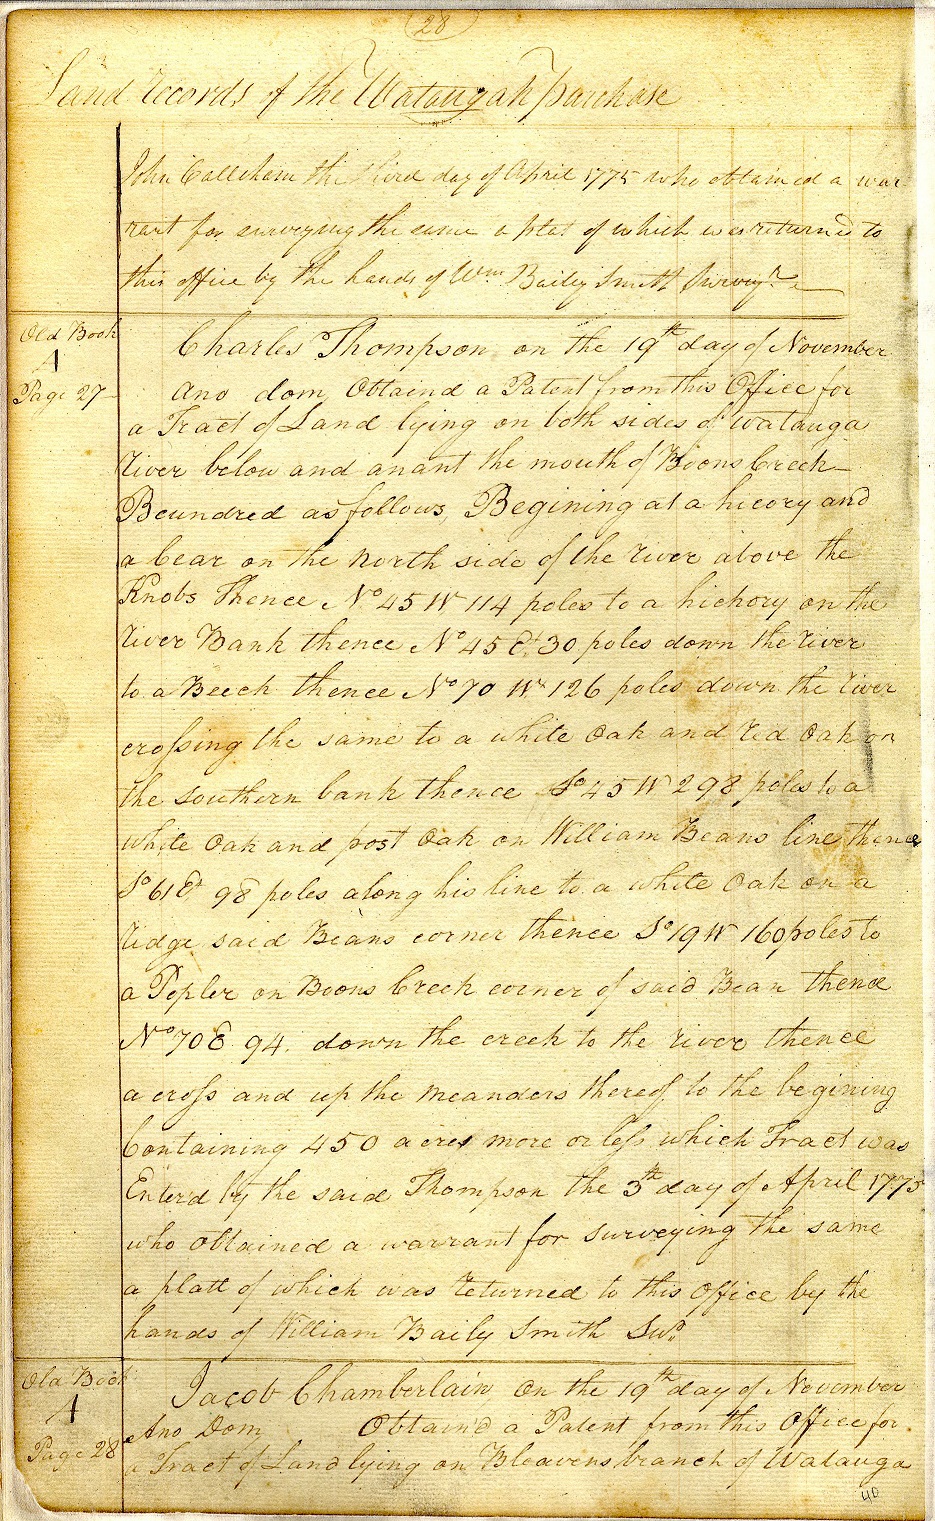 28
Land records of the Wataugah purchase
John Calleham the third day of April 1775 who obtained a war
rant for surveying the same a plat of which was returned to
this office by the hands of Wm. Baily Smith Surveyr.
Old Book
A
Page 27
Charles Thompson on the 19th day of November
Ano dom, Obtaind a Patent from this Office for
a Tract of Land lying on both sides of watauga
River below and anant the mouth of Boons Creek
Boundred as follows, Begining at a hicory and
a bear on the north side of the river above the
Knobs Thence No 45 W 114 poles to a hichory on the
River Bank thence No 45 Et. 30 poles down the river
to a Beech thence No 70 W 126 poles down the River
crossing the same to a white Oak and Red Oak on
the southern bank thence So 45 W 298 poles to a
white Oak and post Oak on William Beans line thence
So 61 Et 98 poles along his line to a white Oak on a
Ridge said Beans corner thence So 19 W 160 poles to
a Popler on Boons Creek corner of said Bean thence
No 70 E 94. down the creek to the river thence
a cross and up the meanders thereof to the begining
Containing 450 acres more or less which Tract was
Enterd by the said Thompson the 3th day of April 1775
who obtained a warrant for surveying the same
a platt of which was returned to this office by the
hands of William Baily Smith Sur.
Old Book
A
Page 28
Jacob Chamberlain On the 19th day of November
Ano Dom, Obtain'd a Patent from this Office for
a Tract of Land lying on branch of Watauga
40